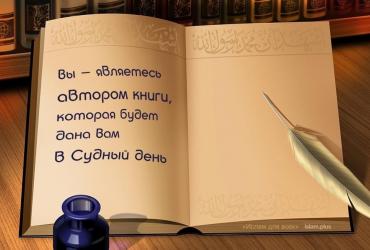 Вы – являетесь
автором книги,
которая будет
дана вам
в Судный день
«Ислам для всех» Islam.plus